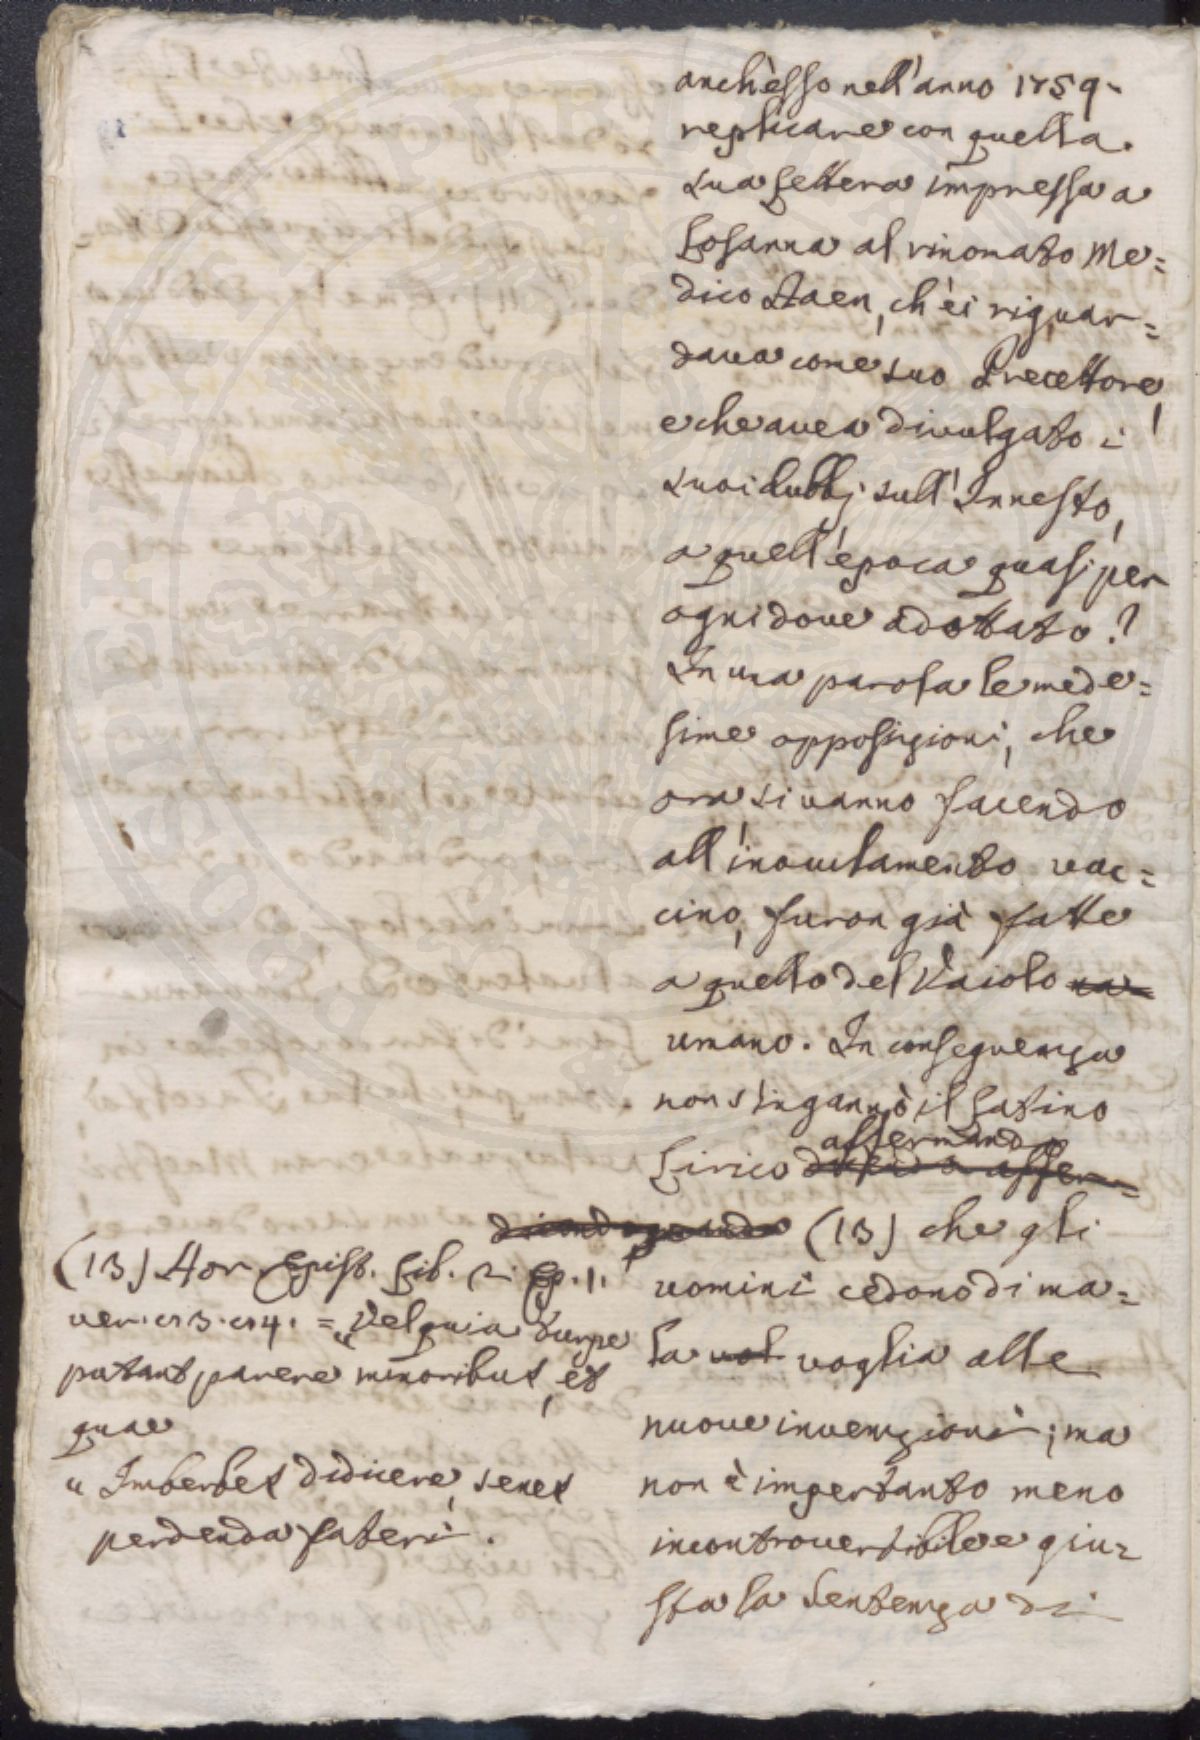 anch'esso nell'anno 1759.
replicare con quella
sua lettera impressa a
Losanna al rinomato Me=
dico Haen, ch'ei riguar=
dava come suo Precettore,
e che avea divulgato i
suoi dubbj sull'Innesto,
a quell'epoca quasi per
ogni dove adottato?
In una parola le mede=
sime opposizioni, che
ora si vanno facendo
all'inoculamento vac=
cino, furon già fatte
a quello del Vaiolo
umano. In conseguenza
non s'ingannò il latino
affermando
Lirico
(13) che gli
uomini cedono di ma=
la voglia alle
nuove invenzioni; ma
non è impertanto meno
incontrovertibile e giu=
sta la Sentenza di
(13) Hor. Epist. Lib. 2. Ep. 1.
ver. 83. 84. = "Vel quia turpe
putant parere minoribus, et
quae
" Imberbes didicere, senes
perdenda fateri.